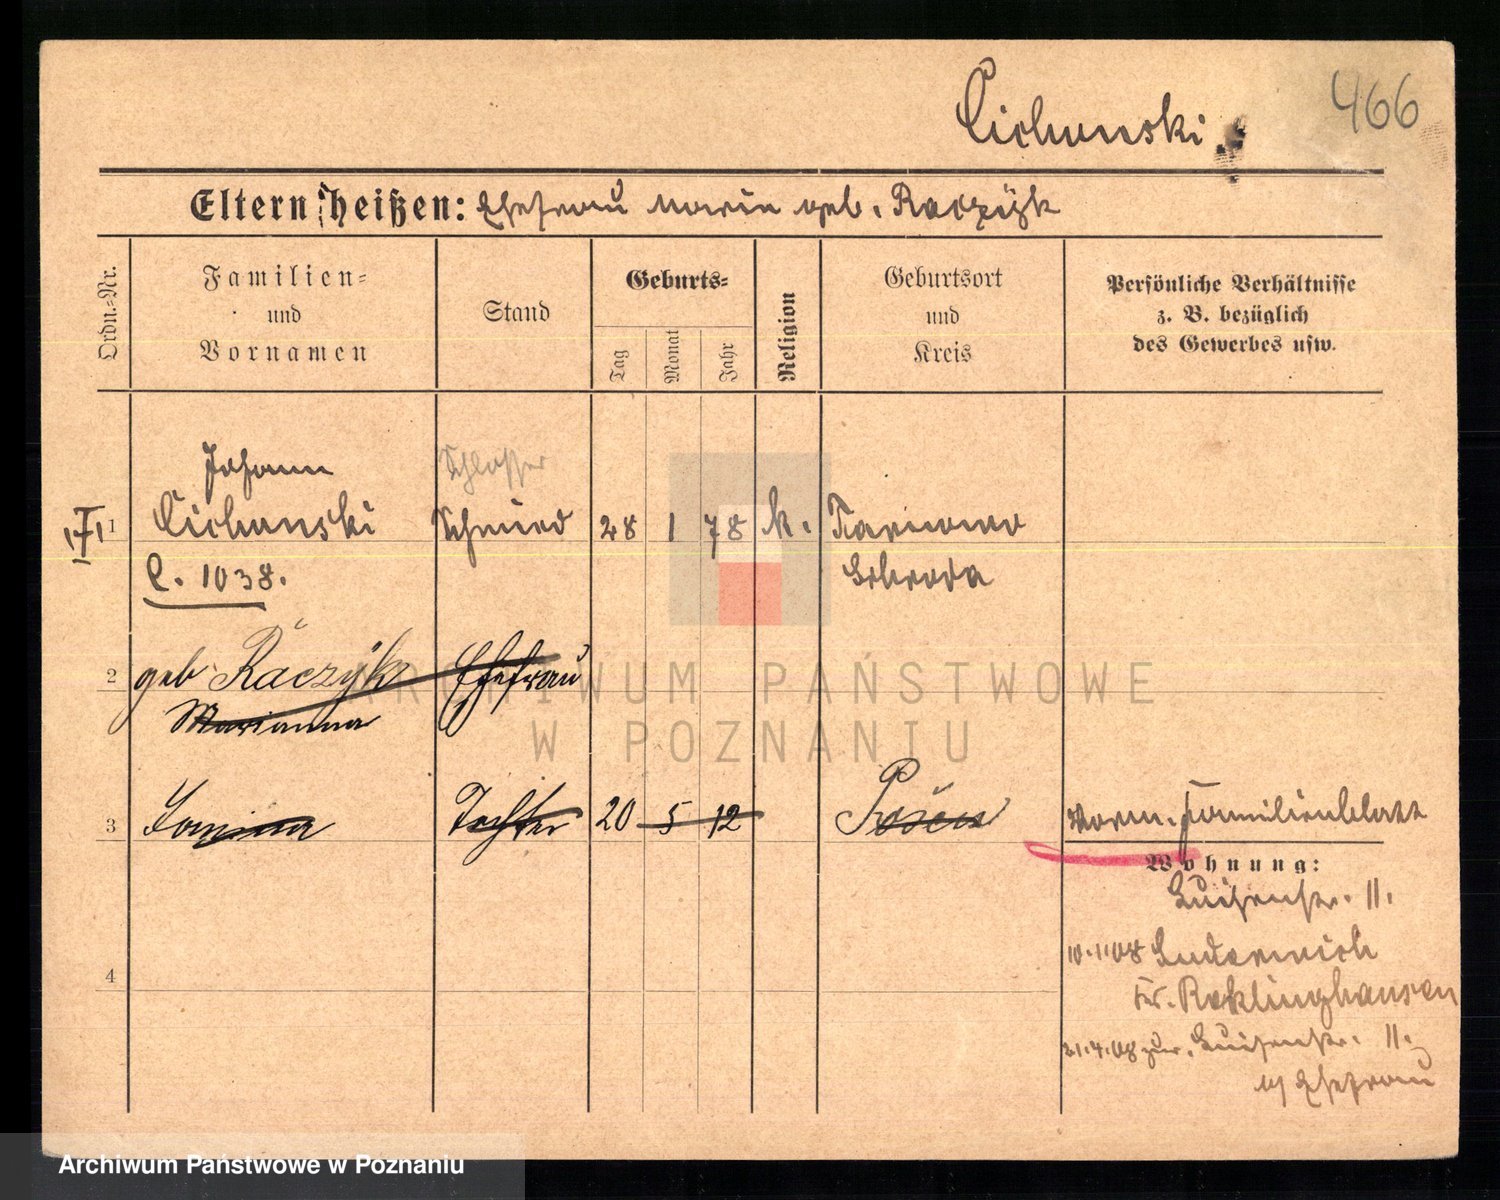 466
Cichanski
Eltern heißen: Ehefrau Marie geb. Raczÿk
Ordn.-Nr.
Familien-
und
Vornamen
Stand
Geburts-
Tag
Monat
Jahr
Religion
Geburtsort
und
Kreis
Persönliche Verhältnisse
z. B. bezüglich
des Gewerbes usw.
Johann
Schlosser
1 Cichanski Schmied 28 1 78 k.
C. 1038. Schroda
2 geb Raczÿk Ehefrau
Marianna
3 Janina Tochter 20 5 12 Posen Vorm. Familienblatt
Wohnung:
Luisenstr. 11.
10.1.08 Suderwich
Kr. Reklinghausen
4
21.4.08 zur. Luisenstr. 11.
Ehefrau
ARCHIWUM PAŃSTWOWE
W POZNANIU
Archiwum Państwowe w Poznaniu